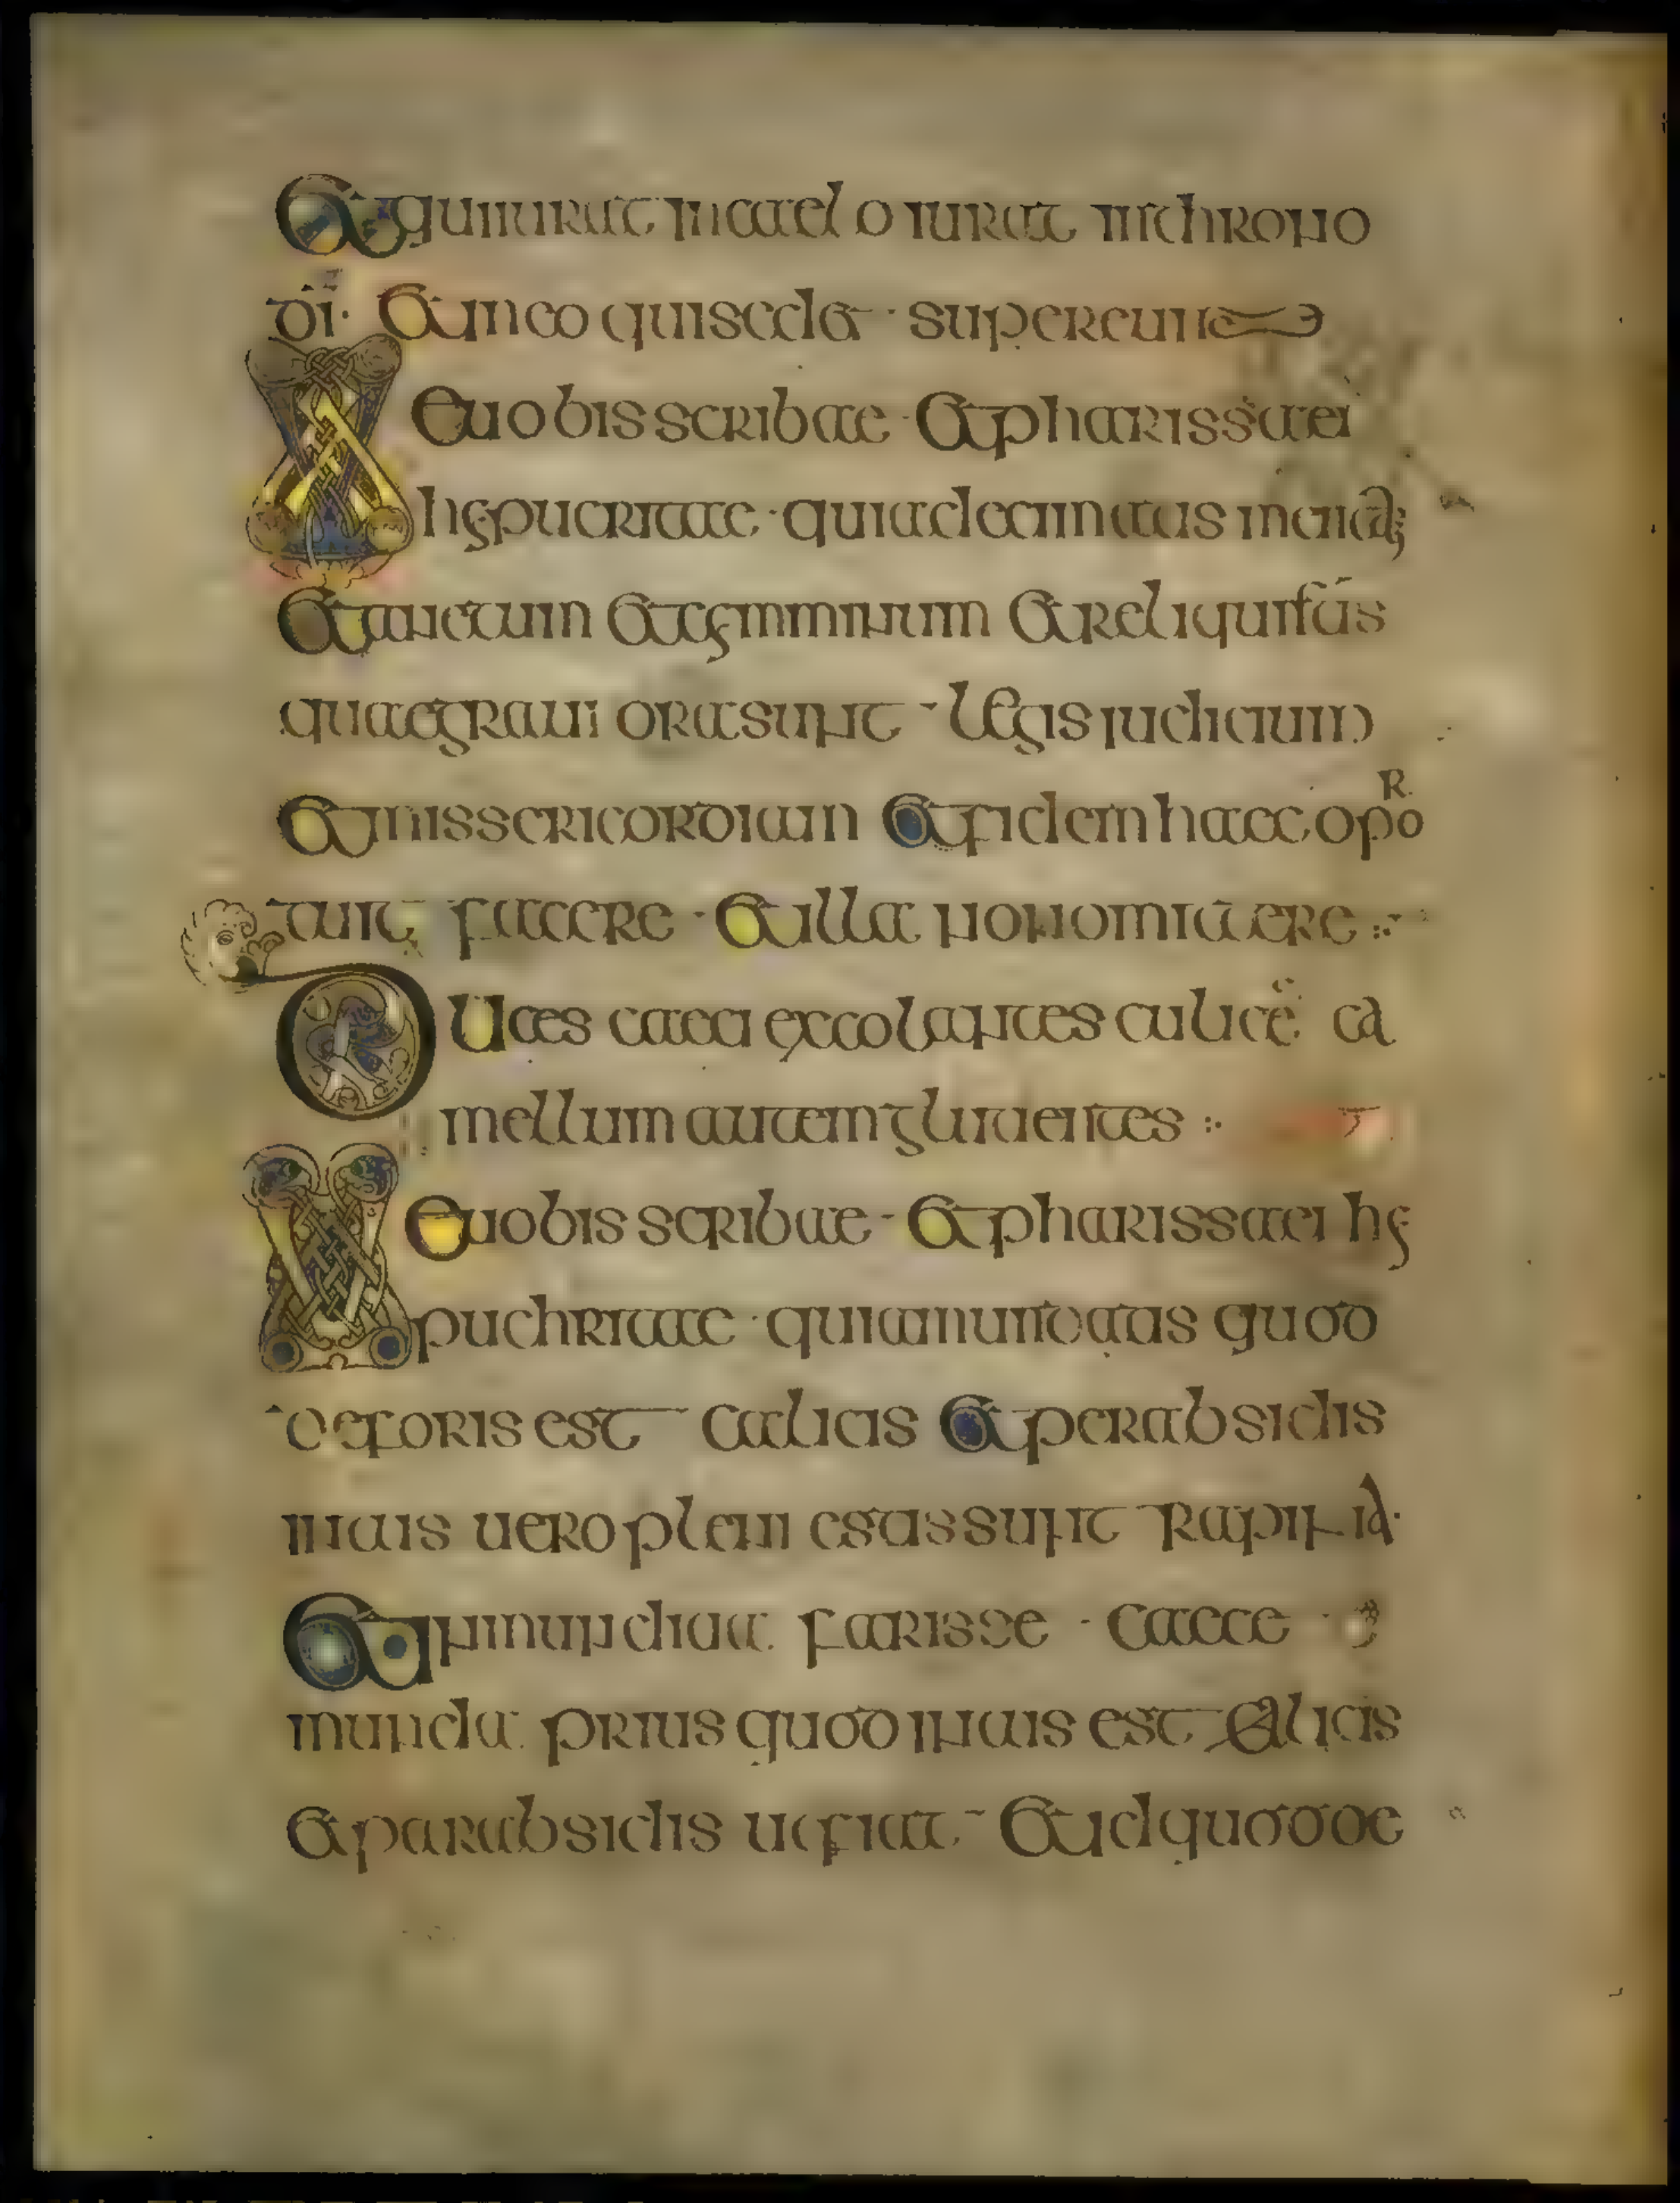 Et qui iurat in caelo iurat in throno
dī · Et in eo qui sedet · super eum
Ve uobis scribae · Et pharissaei
hypucritae · quia decimatis mentā
Et anetum Et cyminum Et reliquistis
quae grauiora sunt · legis iudicium
Et missericordiam Et fidem haec opor
tuit facere · Et illa non omittere :·
Duces caeci excolantes culicē ca
mellum autem glutientes :·
Ve uobis scribae · Et pharissaei hy
puchritae · quia mundatis quod
deforis est calicis Et perabsidis
intus uero pleni estis sunt rapina
Et inmunditia farissee · caece ·
munda prius quod intus est calicis
Et parabsidis ut fiat · Et id quod de